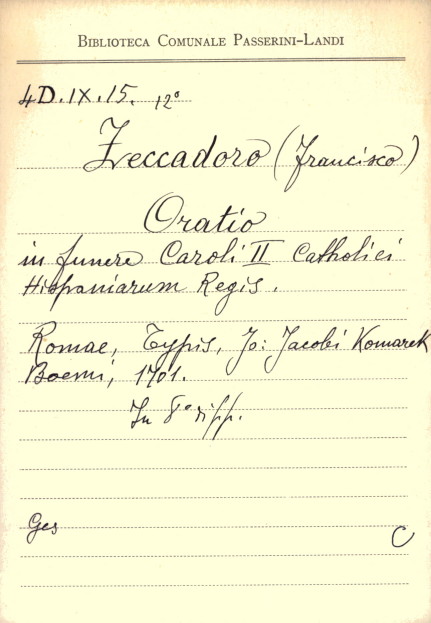 BIBLIOTECA COMUNALE PASSERINI-LANDI
4D.IX.15. 12º
Zeccadoro (Francisco)
Oratio
in funere Caroli II Catholici
Hispaniarum Regis.
Romae, Typis, Jo: Jacobi Komarek
Boemi, 1701.
In 8º
Ges
C